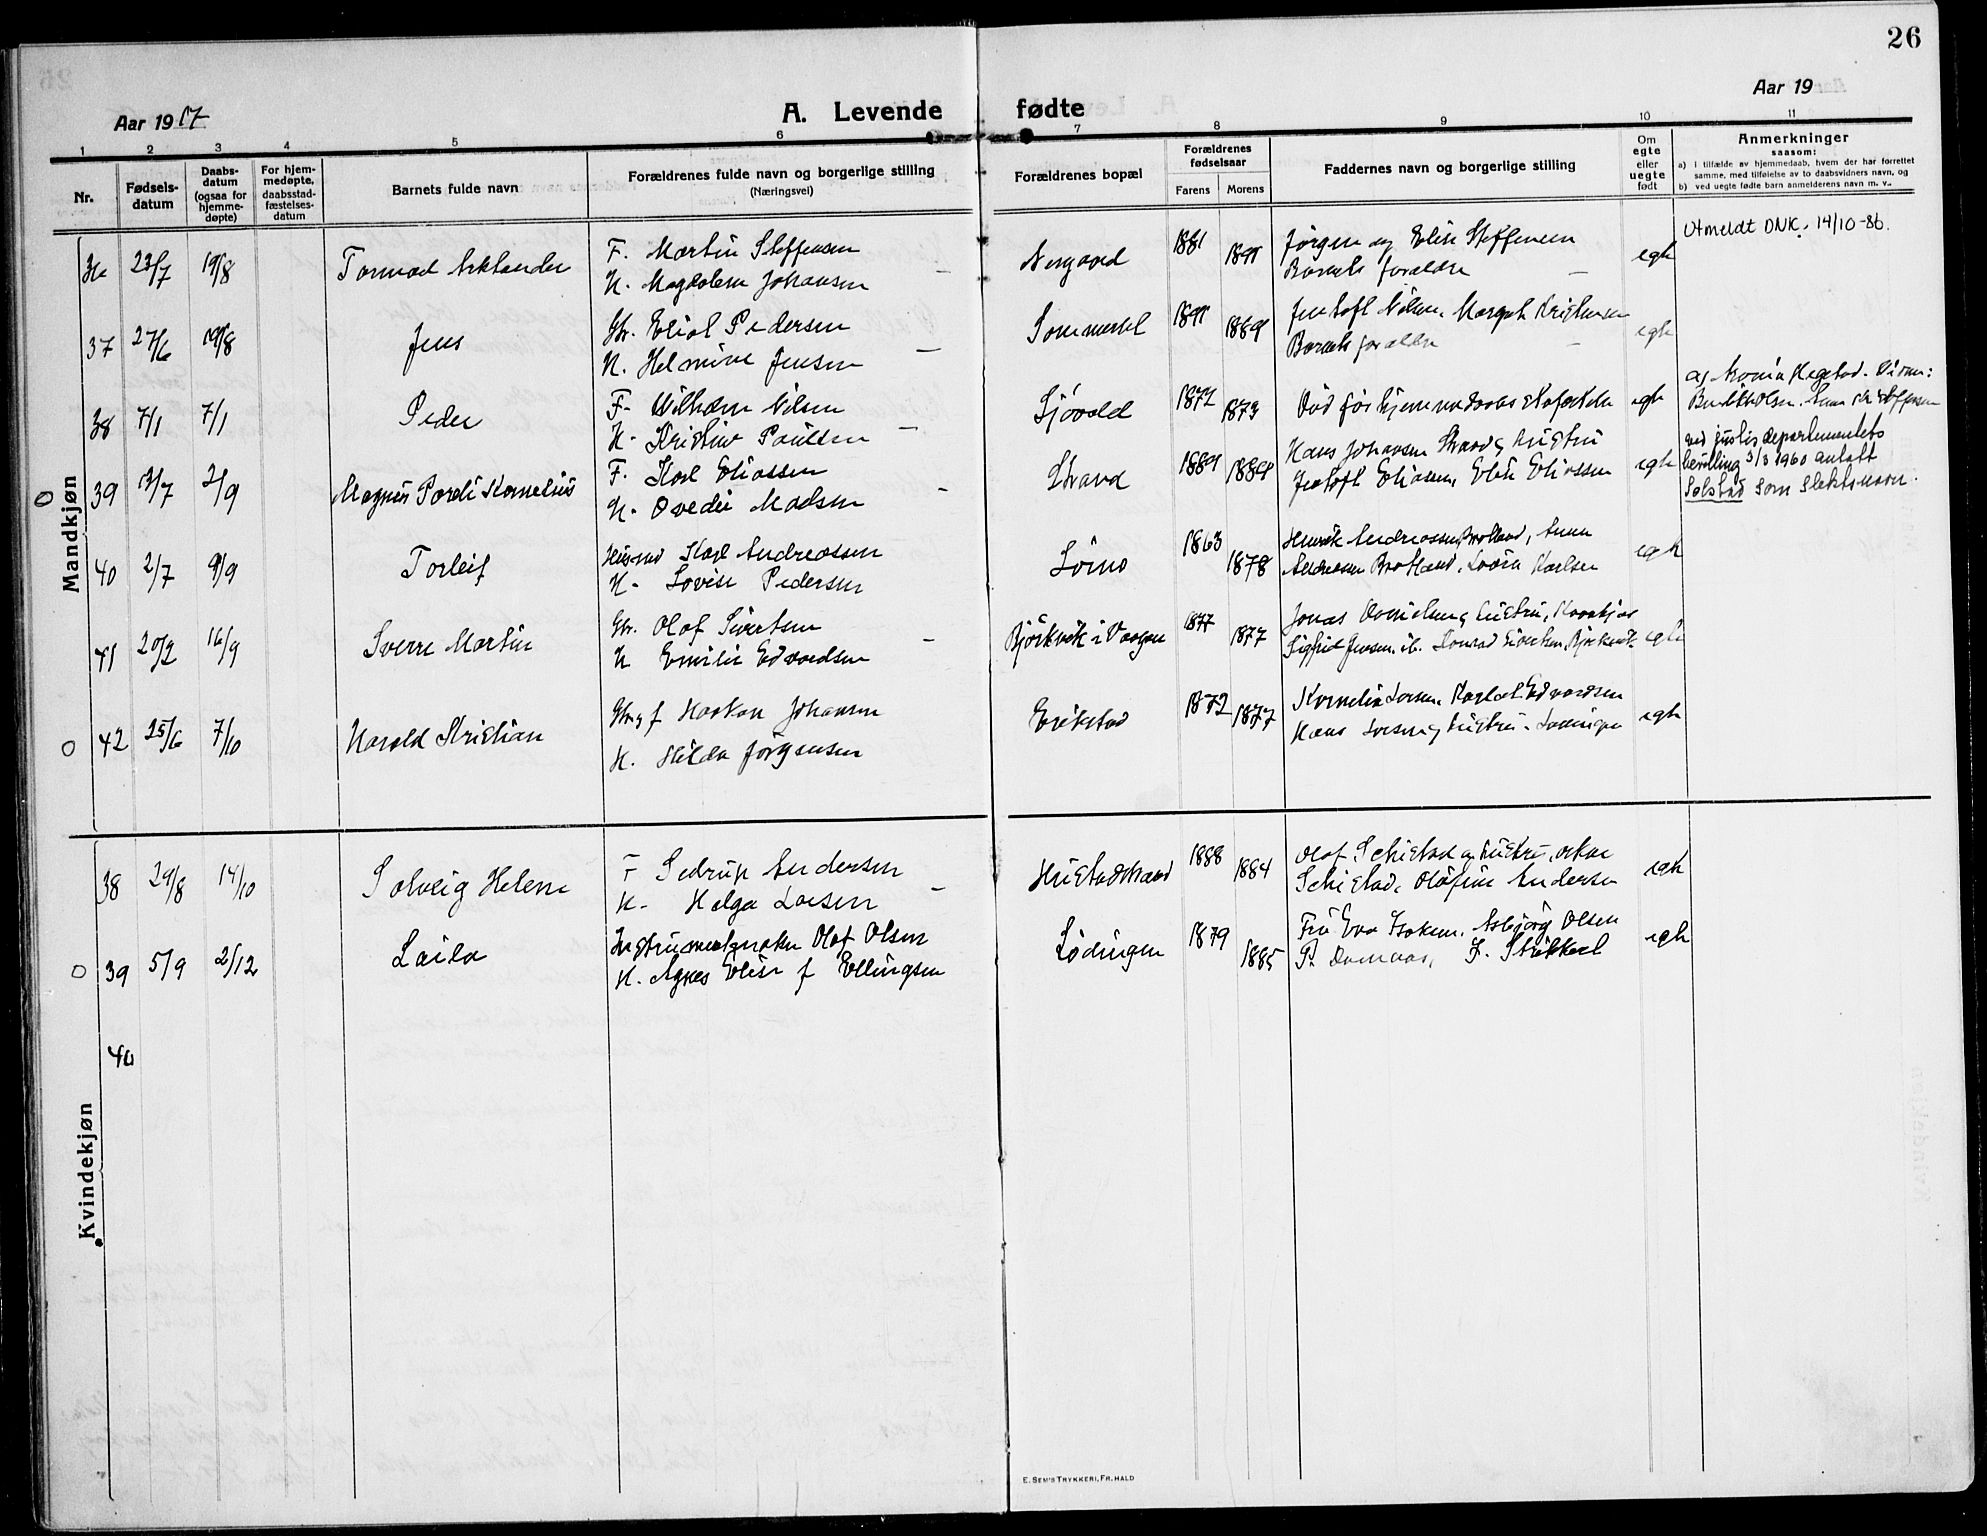 26
Aar 1917
A. Levende fødte
Aar 19
1 2 3 4 5 6 7 8 9 10 11
Nr.
Fødsels-
datum
Daabs-
datum
(ogsaa for
hjemme-
døpte)
For hjem-
medøpte,
daabsstad-
fæstelses-
datum
Barnets fulde navn
Forældrenes fulde navn og borgerlige stilling
(Næringsvei)
Forældrenes bopæl
Forældrenes
fødselsaar
Farens Morens
Faddernes navn og borgerlige stilling
Om
egte
eller
uegte
født
Anmerkninger
saasom:
a) i tilfælde av hjemmedaab, hvem der har forrettet
samme, med tilføielse av to daabsvidners navn, og
b) ved uegte fødte barn anmelderens navn m. v..
Mandkjøn
36 23/7 19/8 Tormod F. Martin Steffensen
N. Magdalena Johansen
1881 Jørgen og Elise Steffensen
Barnets forældre
egte
Utmeldt DNK. 14/10-86.
37 27/6 19/8 Jens Gbr. Eliot Pedersen
N. Helmine Jensen
Sommersel
Jentoft Nilsen, Margot Kristensen
Barnets forældre
egte
38 7/1 7/1 Peder F. Wilhelm Nilsen
N. Kristine Paulsen
Sjövold 1872 1873
Død før hjemmedaabs
egte
39 13/7 2/9 Magnus Pareli Kornelius F. Karl Eliassen
N. Ovedie Madsen
Strand
Hans Johansen Strand og hustru
Jentoft Eliassen, Eliassen
egte
ved justisdepartementets
bevilling 3/3 1960 antatt
Solstad som slektsnavn.
40 2/7 9/9 Torleif Husmand Karl Andreassen
N. Lovise Pedersen
1863 1878
Henrik Andreassen, Anna
Andreassen Karlsen
egte
41 20/2 16/9 Sverre Martin Gbr. Olaf Sivertsen
N Emilie Edvardsen
Bjørkvik i Vaagan 1877 1877
Jonas Danielsen og hustru,
Sigfrid Jensen, Konrad Sivertsen, Bjørkvik
egte
42 25/6 7/10 Harald Kristian Haakon Johansen
N. Hilda Jörgensen
Erikstad 1872 1877
Kornelia Larsen, Edvardsen
Hans Larsen og hustru
egte
Kvindekjøn
38 29/8 14/10 Solveig Helene F Sedrup Andersen
N. Helga Larsen
1888 1884
Olaf Schistad og hustru, Oskar
Schistad, Olufine Andersen
egte
39 5/9 2/12 Laila Instrumentmaker Olaf Olsen
N. Agnes Elise f Ellingsen
Lödingen 1879 1885
Fru Eva Isaksen, Asbjörg Olsen
egte
40
E. SEM'S TRYKKERI, FR.HALD